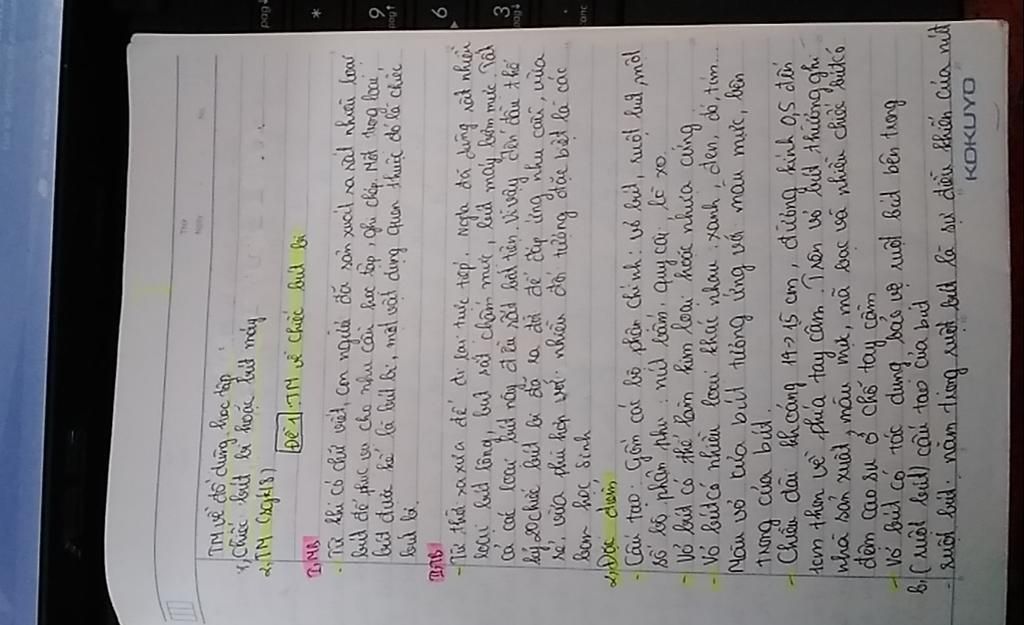 Thứ
Ngày
No.
TM về đồ dùng học tập
1, Chiếc bút bi hoặc bút máy
2, TM (sgk/8)
Đề 1 TM về chiếc bút bi
I, MB
- Từ khi có chữ viết, con người đã sản xuất ra rất nhiều loại
bút để phục vụ cho nhu cầu học tập, ghi chép. Một trong loại
bút được kể là bút bi, một vật dụng quen thuộc đó là chiếc
bút bi
II, TB
- Từ thời xa xưa để đi lại trực tiếp, người đã dùng rất nhiều
loại bút lông, bút sắt chấm mực, bút máy bơm mực. Tất
cả các loại bút này đều rất bất tiện. Vì vậy đến đầu thế
kỷ 20 chiếc bút bi đã ra đời để đáp ứng nhu cầu, vừa
rẻ, vừa phù hợp với nhiều đối tượng đặc biệt là các
bạn học sinh
2, Đặc điểm
- Cấu tạo: Gồm các bộ phận chính: vỏ bút, ruột bút, một
số bộ phận phụ: nút bấm, quy cài, lò xo
- Vỏ bút có thể làm kim loại hoặc nhựa cứng
- Vỏ bút có nhiều loại khác nhau: xanh, đen, đỏ, tím...
Màu vỏ của bút tương ứng với màu mực, bên
trong của bút.
- Chiều dài khoảng 14->15 cm, đường kính 0,5 đến
1cm thon về phía tay cầm. Trên vỏ bút thường ghi
nhà sản xuất, màu mực, mã vạc và nhiều chiếc bút có
đệm cao su ở chỗ tay cầm
- Vỏ bút có tác dụng bảo vệ ruột bút bên trong
b, (ruột bút) cấu tạo của bút
- ruột bút: nằm trong ruột bút là sự điều khiển của nút
KOKUYO
pag↓
*
9
pag↑
6
3
pag↓
.
canc